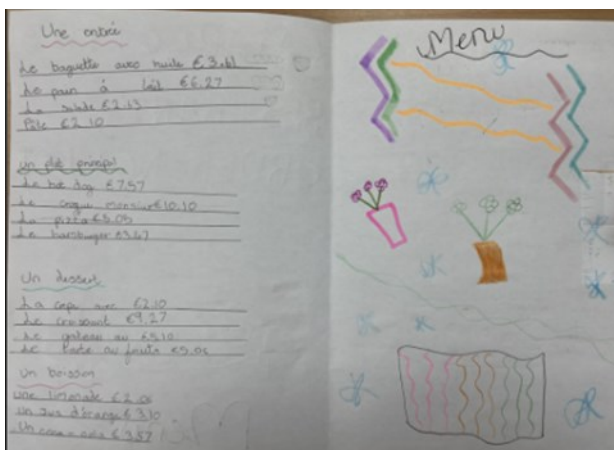 Une entrée
Le baguette avec huile €3.61
Le pain à lait €6.27
La salade €2.13
Pâte €2.10
un plat principal
Le hot dog €7.57
Le croque monsieur €10.10
La pizza €5.05
Le hamburger €3.47
Un dessert
La crepe avec €2.10
Le croissant €9.27
Le gateau au €5.10
Le tarte au fruits €5.05
un boisson
une limonade €2.05
un jus d'orange €3.10
un coca-cola €3.57
Menu